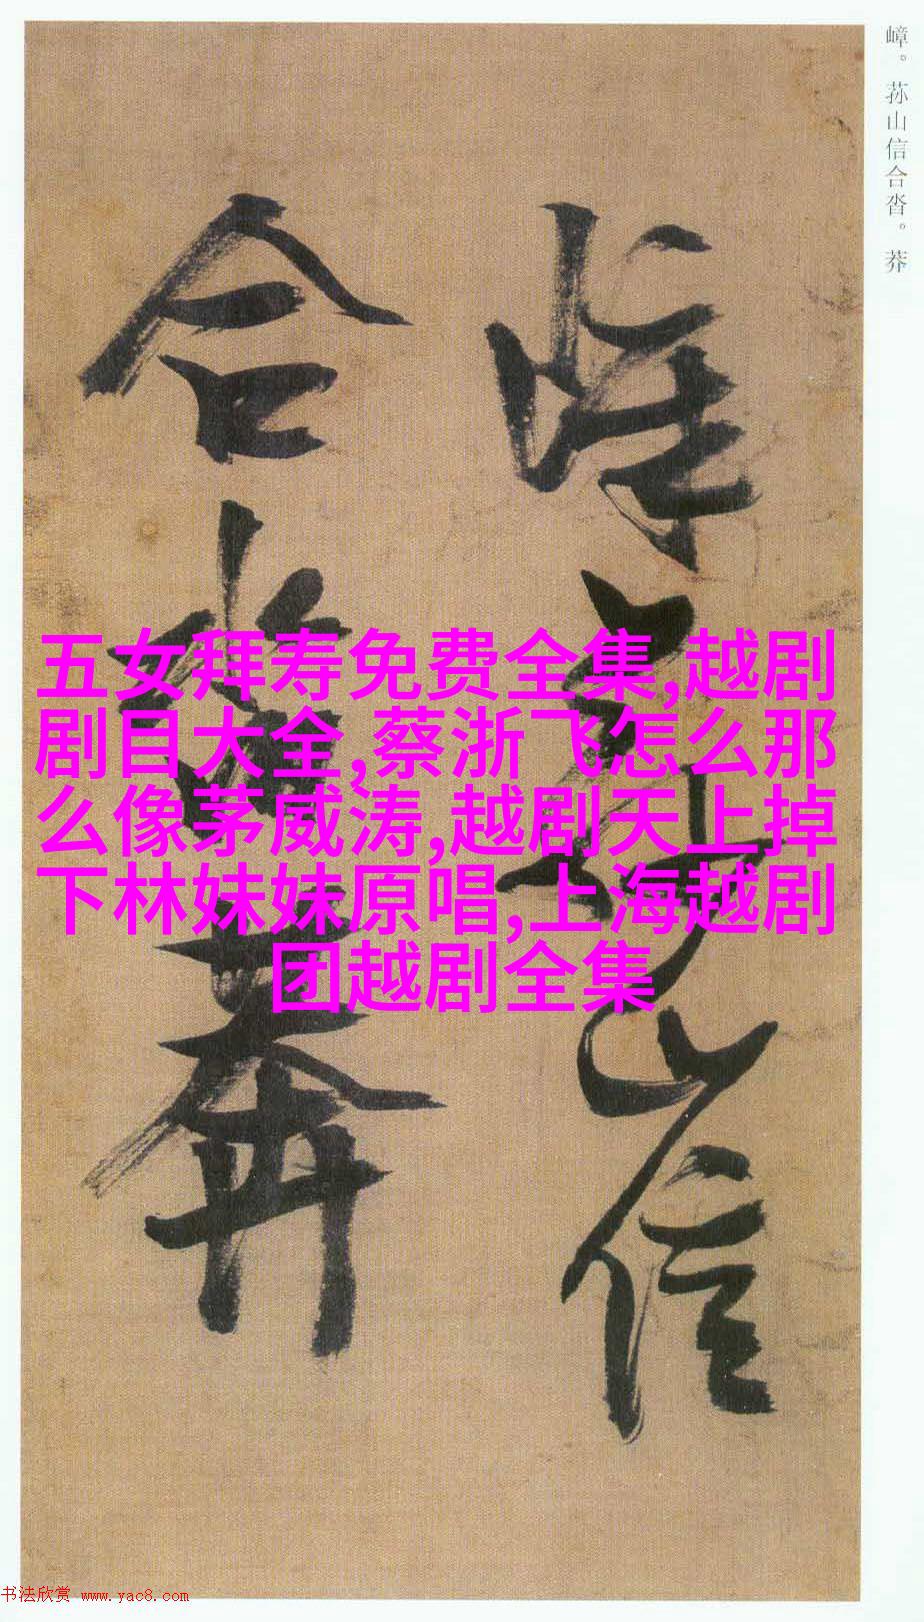 嶂。荪山信合沓。莽
嶂荪山信
合沓莽
五女拜寿免费全集,越剧
剧目大全,蔡浙飞怎么那
么像茅威涛,越剧天上掉
下林妹妹原唱,上海越剧
团越剧全集
书法欣赏 www.yac8.com